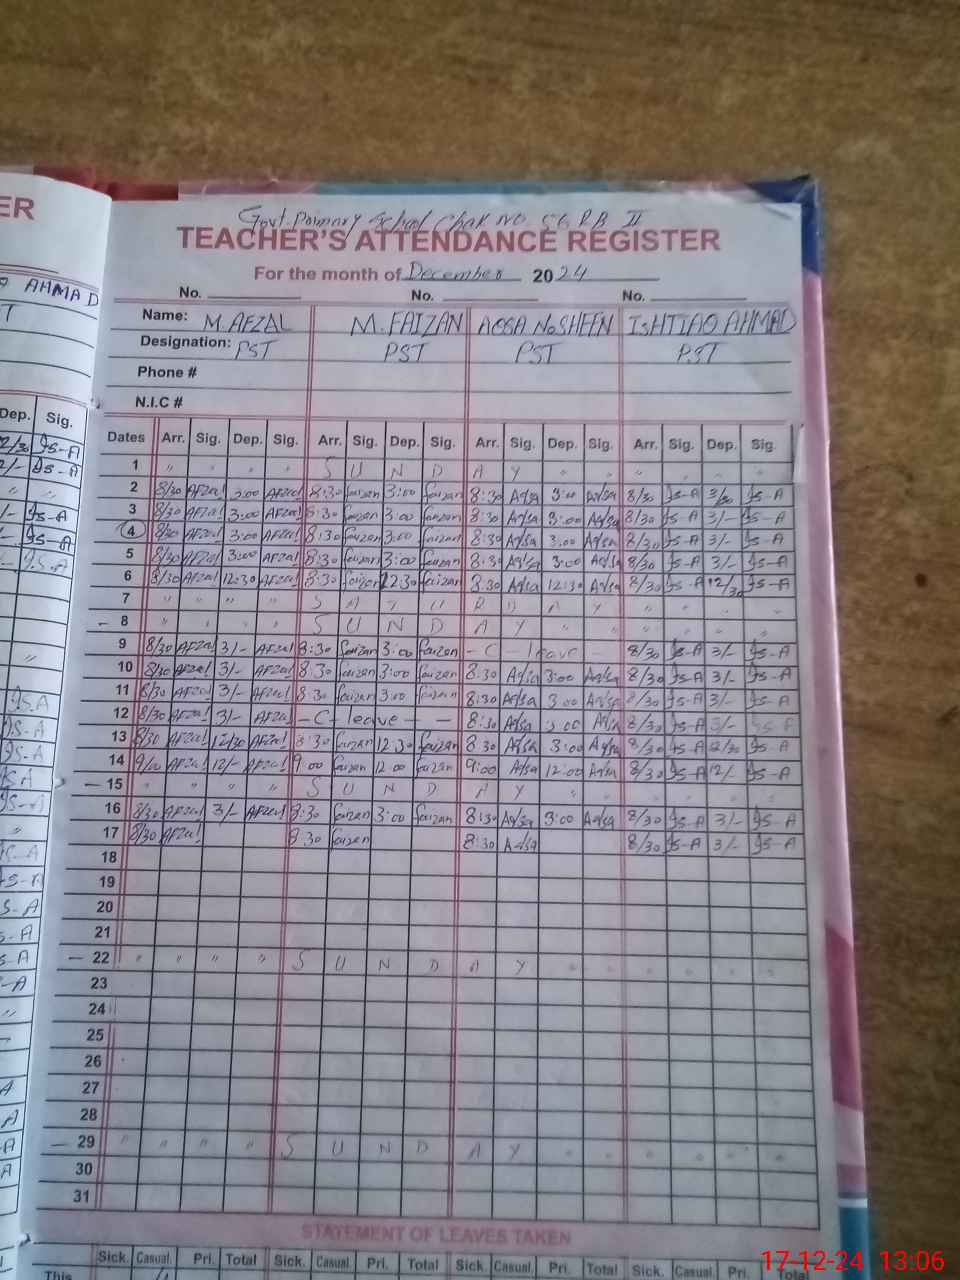 ER
Govt. Primary School Chak No 56 RB II
TEACHER'S ATTENDANCE REGISTER
For the month of December 2024
No. No. No.
AHMAD
Name: M. AFZAL M. FAIZAN AQSA NOSHEEN ISHTIAQ AHMAD
Designation: PST PST PST PST
Phone #
N.I.C #
Dep. Sig.
Dates Arr. Sig. Dep. Sig. Arr. Sig. Dep. Sig. Arr. Sig. Dep. Sig. Arr. Sig. Dep. Sig.
1 " " " " S U N D A Y " " " " "
2 8/30 Afzal 3:00 Afzal 8:30 faizan 3:00 faizan 8:30 Aqsa 3:00 Aqsa 8/30 Is-A 3/30 Is-A
3 8/30 Afzal 3:00 Afzal 8:30 faizan 3:00 faizan 8:30 Aqsa 3:00 Aqsa 8/30 Is-A 3/- Is-A
4 8/30 Afzal 3:00 Afzal 8:30 faizan 3:00 faizan 8:30 Aqsa 3:00 Aqsa 8/30 Is-A 3/- Is-A
5 8/30 Afzal 3:00 Afzal 8:30 faizan 3:00 faizan 8:30 Aqsa 3:00 Aqsa 8/30 Is-A 3/- Is-A
6 8/30 Afzal 12:30 Afzal 8:30 faizan 12:30 faizan 8:30 Aqsa 12:30 Aqsa 8/30 Is-A 12/30 Is-A
7 " " " " S A T U R D A Y " " " "
- 8 " " " " S U N D A Y " " " " "
9 8/30 Afzal 3/- Afzal 8:30 faizan 3:00 faizan - C - leave - 8/30 Is-A 3/- Is-A
10 8/30 Afzal 3/- Afzal 8:30 faizan 3:00 faizan 8:30 Aqsa 3:00 Aqsa 8/30 Is-A 3/- Is-A
11 8/30 Afzal 3/- Afzal 8:30 faizan 3:00 faizan 8:30 Aqsa 3:00 Aqsa 8/30 Is-A 3/- Is-A
12 8/30 Afzal 3/- Afzal - C - leave - - 8:30 Aqsa 3:00 Aqsa 8/30 Is-A 3/- Is-A
13 8/30 Afzal 12/30 Afzal 8:30 faizan 12:30 faizan 8:30 Aqsa 3:00 Aqsa 8/30 Is-A 12/30 Is-A
14 9/00 Afzal 12/- Afzal 9:00 faizan 12:00 faizan 9:00 Aqsa 12:00 Aqsa 8/30 Is-A 12/- Is-A
- 15 " " " " S U N D A Y " " " " "
16 8/30 Afzal 3/- Afzal 8:30 faizan 3:00 faizan 8:30 Aqsa 3:00 Aqsa 8/30 Is-A 3/- Is-A
17 8/30 Afzal 8:30 faizan 8:30 Aqsa 8/30 Is-A 3/- Is-A
18
19
20
21
- 22 " " " " S U N D A Y " " " " " "
23
24
25
26
27
28
- 29 " " " " S U N D A Y " " " " " "
30
31
STATEMENT OF LEAVES TAKEN
Sick. Casual. Pri. Total Sick. Casual. Pri. Total Sick. Casual. Pri. Total Sick. Casual. Pri. Total
This
17-12-24 13:06